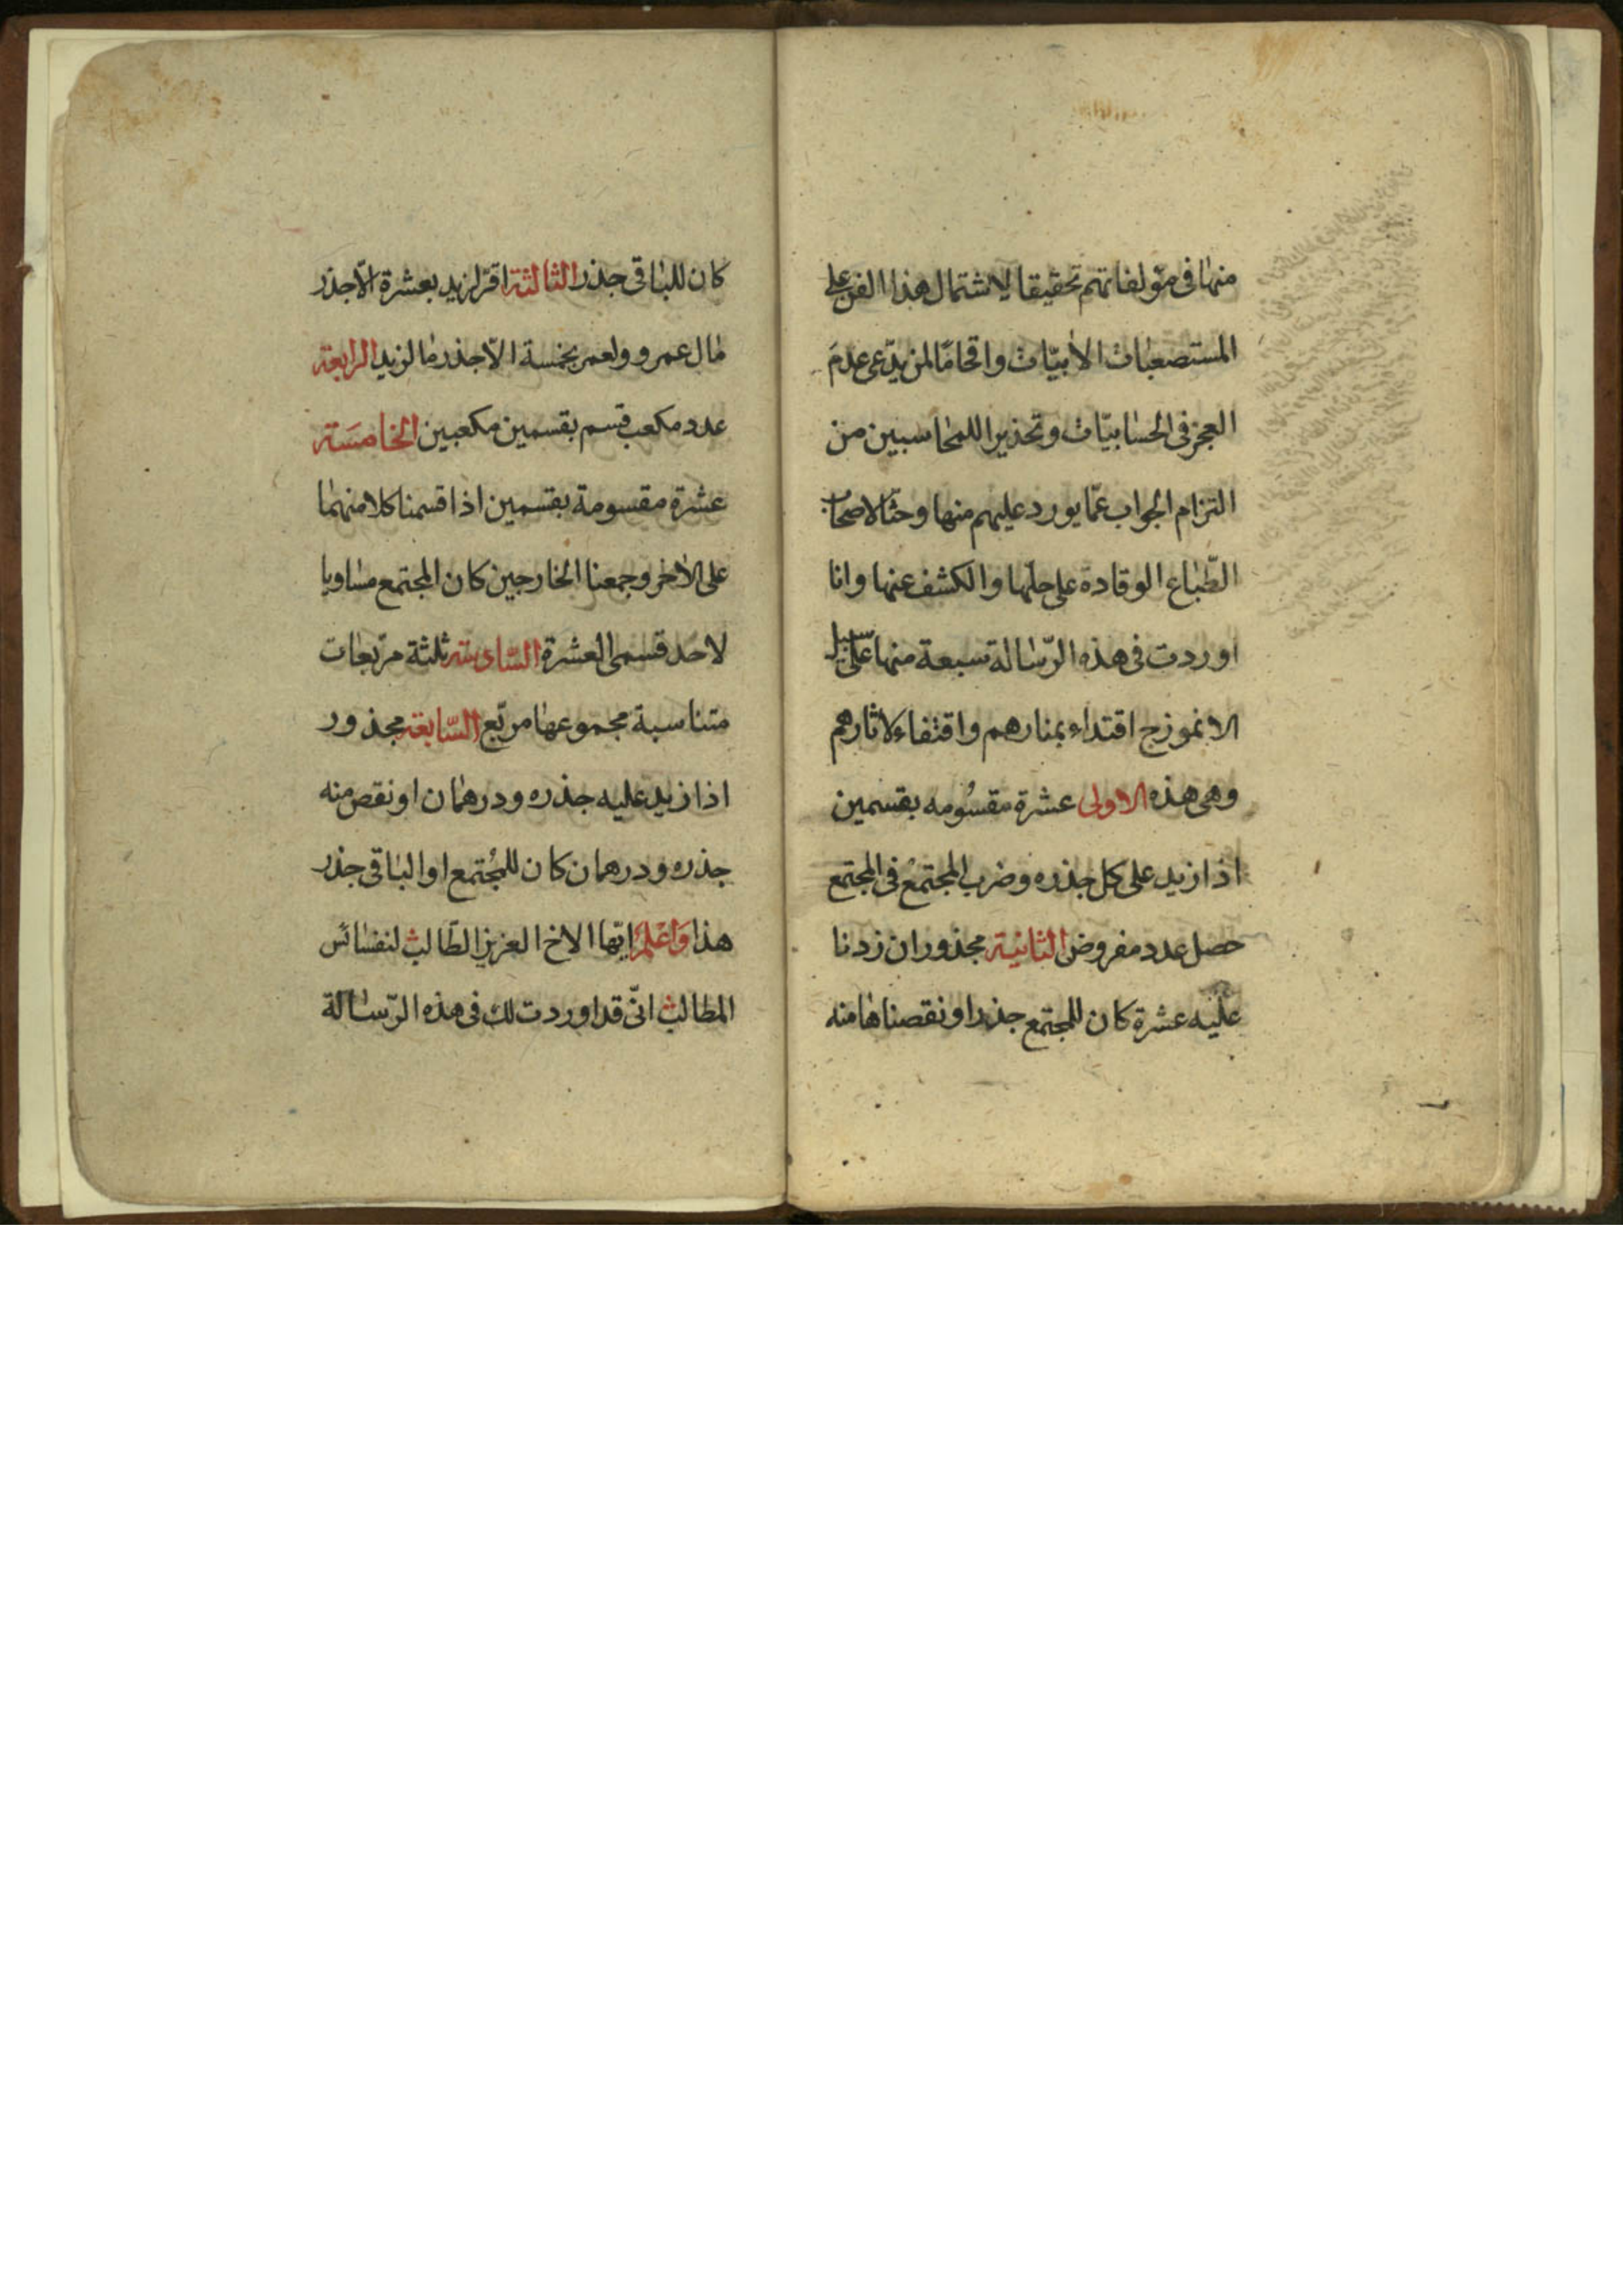 منها فى مؤلفاتهم تحقيقا لاشتمال هذا الفن على
المستصعبات الأبيّات وافحامًا لمن يدّعى عدم
العجز فى الحسابيّات وتحذيرا للمحاسبين من
التزام الجواب عمّا يورد عليهم منها وحثّا لاصحاب
الطّباع الوقادة على حلّها والكشف عنها وانا
اوردت فى هذه الرّسالة سبعة منها على سبيل
الانموزج اقتداء بمنارهم واقتفاء لاثارهم
وهى هذه الاولى عشرة مقسُومه بقسمين
اذا زيد على كل جذره وضرب المجتمع فى المجتمع
حصل عدد مفروض الثانية مجذور ان زدنا
عليه عشرة كان للمجتمع جذر او نقصناها منه
كان للباقى جذر الثالثة اقرّ لزيد بعشرة الّا جذر
مال عمرو ولعمر بخمسة الّا جذر ما لزيد الرابعة
عدد مكعب قسم بقسمين مكعبين الخامسَة
عشرة مقسومة بقسمين اذا قسمنا كلا منهما
على الأخر وجمعنا الخارجين كان المجتمع مساويا
لاحد قسمى العشرة السّادسة ثلثة مربّعات
متناسبة مجموعها مربّع السّابعة مجذور
اذا زيد عليه جذره ودرهمان او نقص منه
جذره ودرهمان كان للمُجتمع او الباقى جذر
هذا وَاعْلَمْ ايّها الاخ العزيز الطّالب لنفسائس
المطالب انّى قد اوردت لك فى هذه الرّسالة